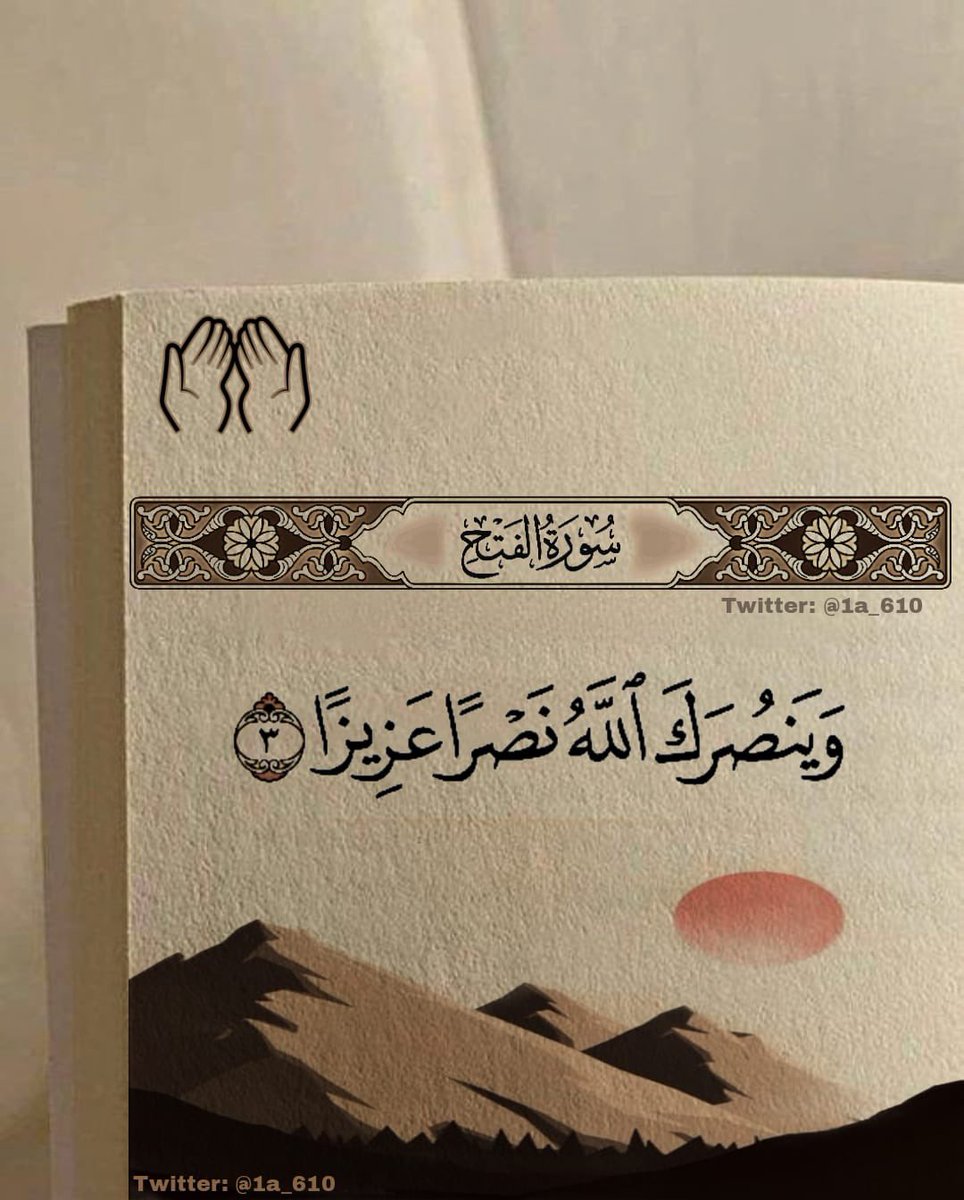 سُورَةُ الفَتْحِ
Twitter: @1a_610
وَيَنصُرَكَ ٱللَّهُ نَصْرًا عَزِيزًا ٣
Twitter: @1a_610